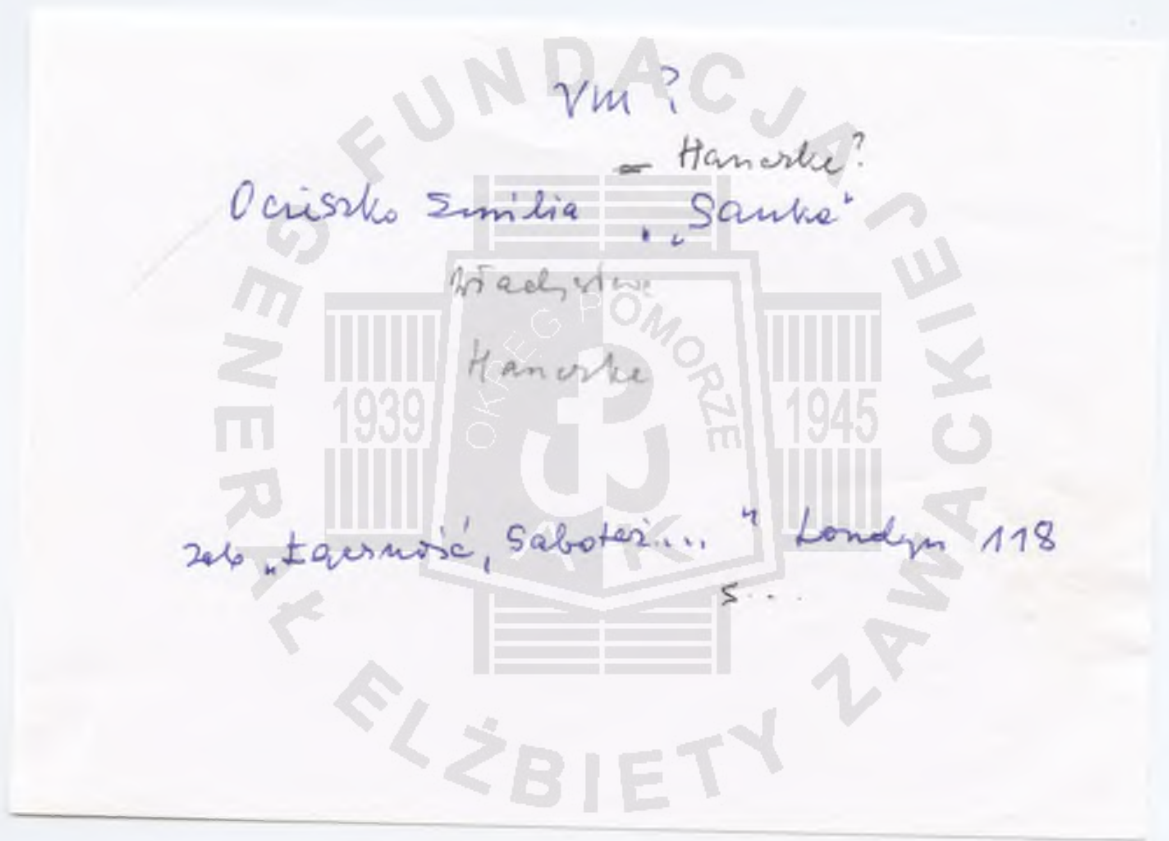 VM ?
= Hanerska?
Ocieszko Emilia „Sanka"
Władysława
Hanerska
zob „Łączność, Sabotaż...." Londyn 118
s...
FUNDACJA GENERAŁ ELŻBIETY ZAWACKIEJ
OKRĘG POMORZE
1939
1945
AK